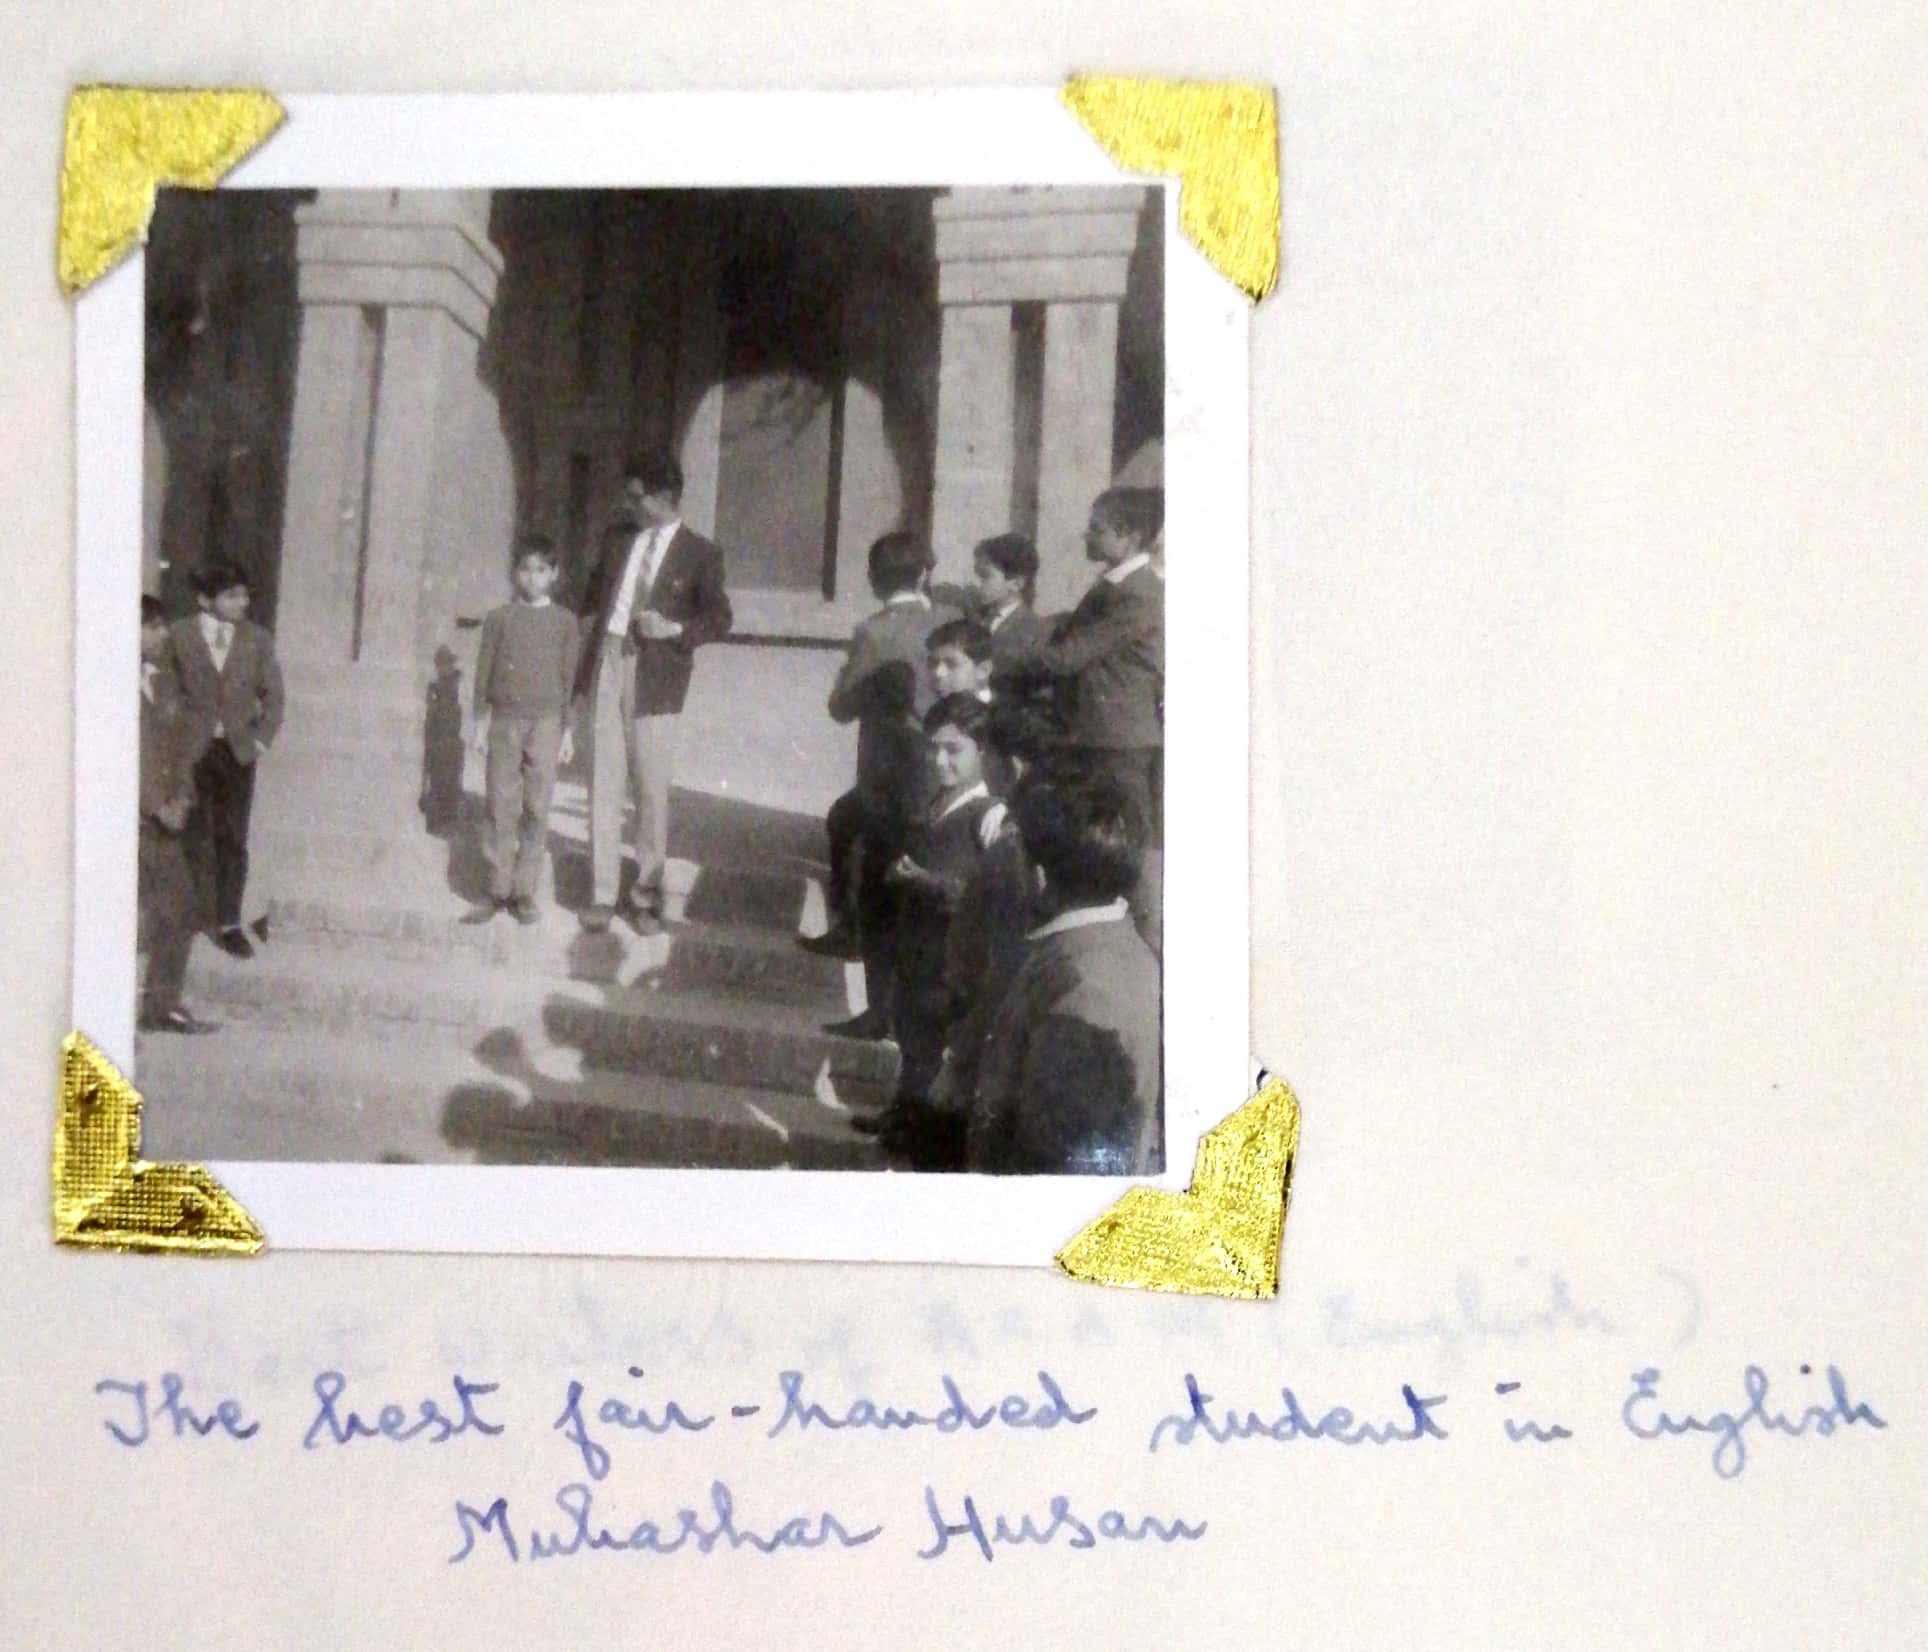 The best fair-handed student in English
Mubashar Husan